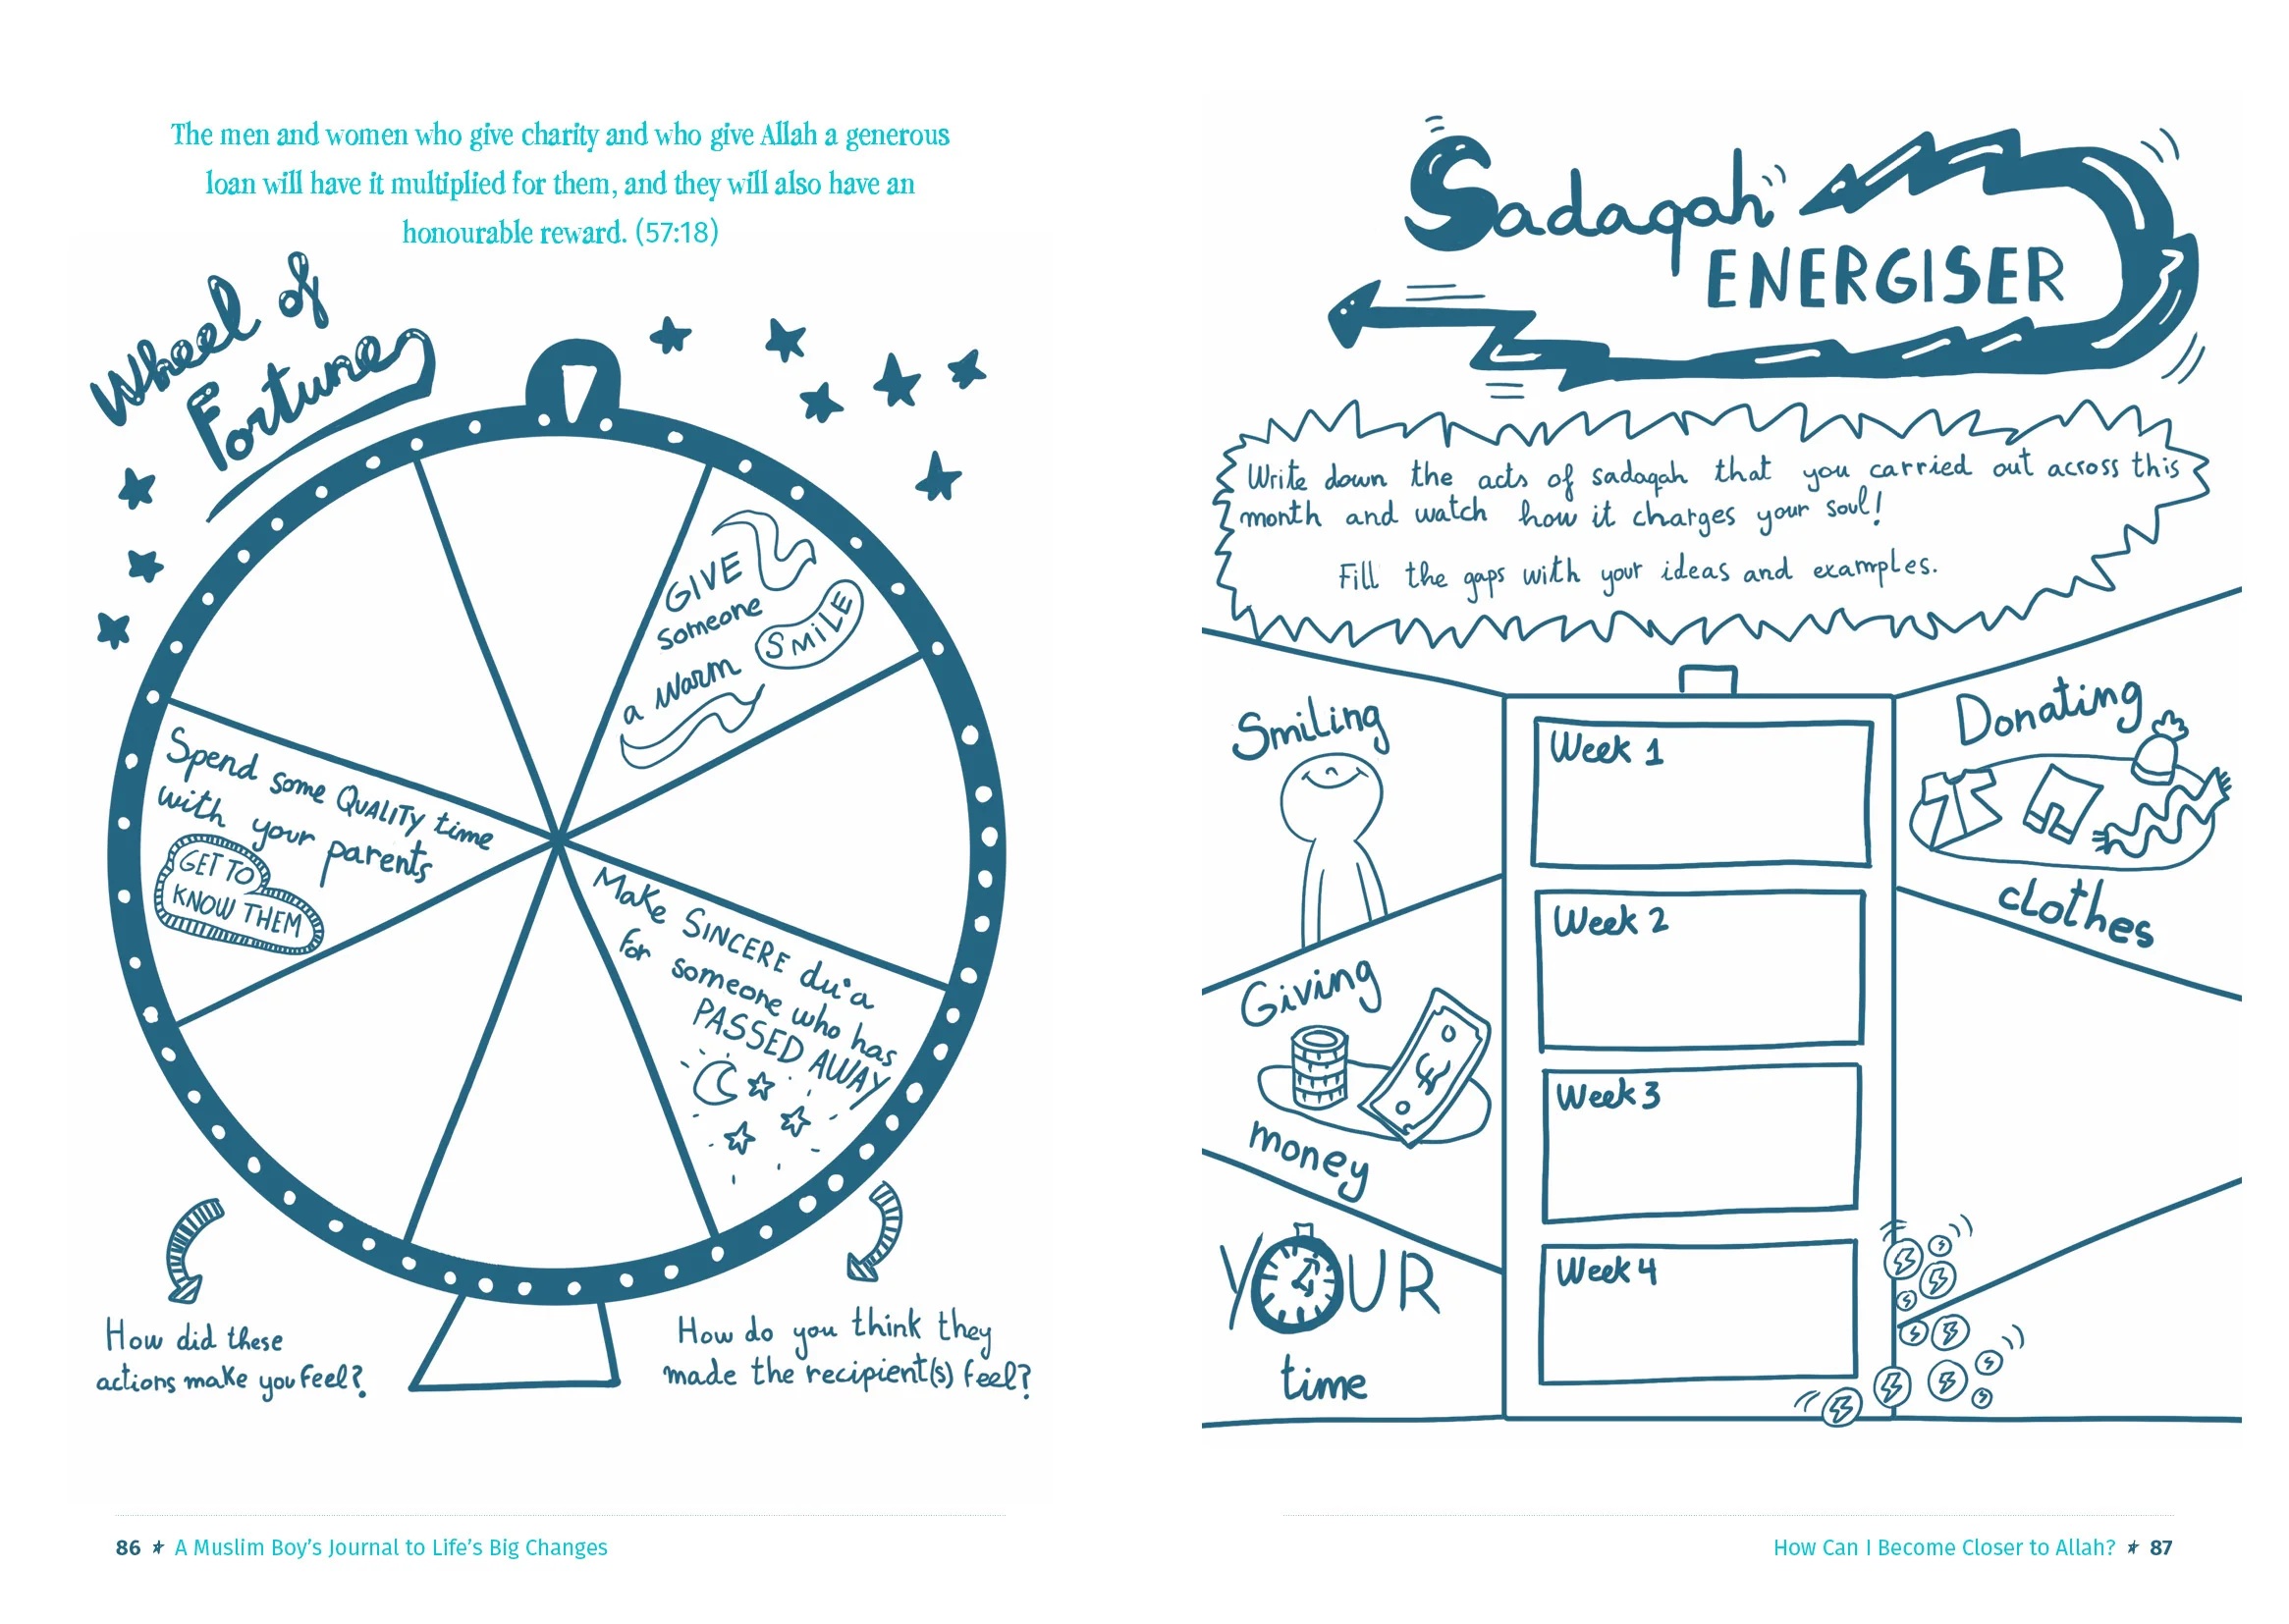 The men and women who give charity and who give Allah a generous
loan will have it multiplied for them, and they will also have an
honourable reward. (57:18)
Wheel of
Fortune
GIVE
someone
a warm
SMiLE
Spend some QUALITY time
with your parents
GET TO
KNOW THEM
Make SINCERE du'a
for someone who has
PASSED AWAY
How did these
actions make you feel?
How do you think they
made the recipient(s) feel?
86 A Muslim Boy's Journal to Life's Big Changes
Sadaqah
ENERGISER
Write down the acts of sadaqah that you carried out across this
month and watch how it charges your soul!
Fill the gaps with your ideas and examples.
Smiling
Giving
money
YOUR
time
Week 1
Week 2
Week 3
Week 4
Donating
clothes
How Can I Become Closer to Allah? 87